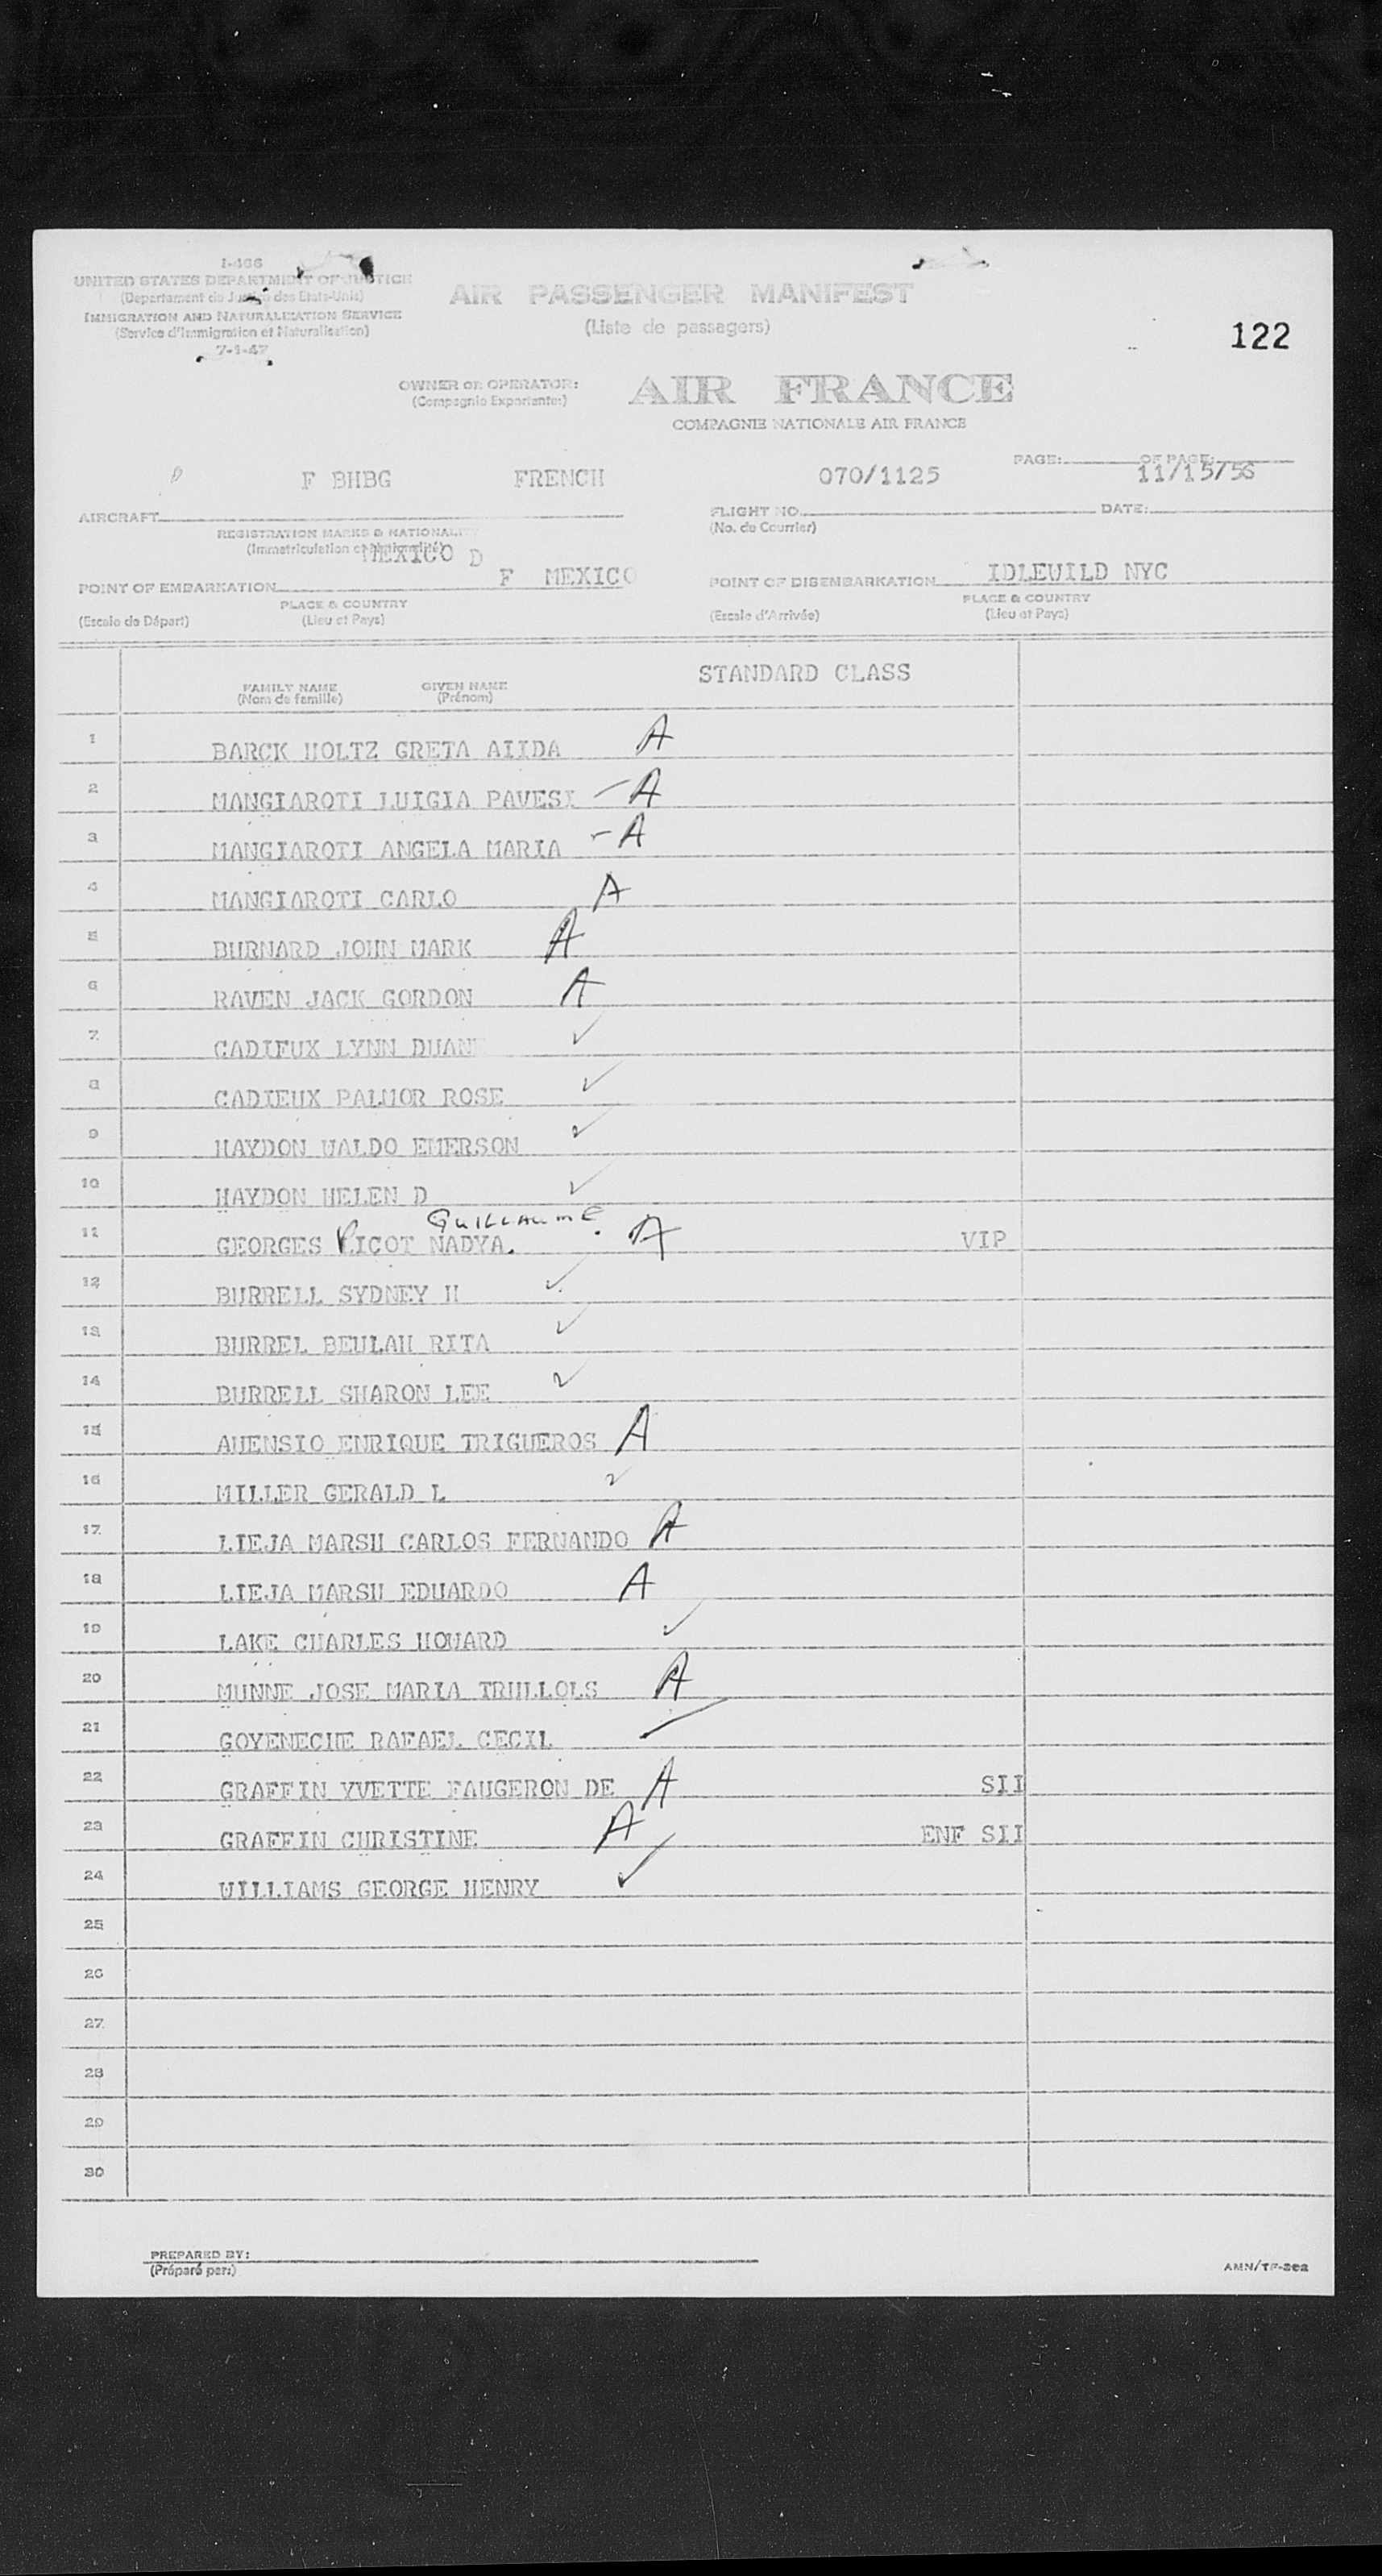 I-466
UNITED STATES DEPARTMENT OF JUSTICE
(Departement de Justice des Etats-Unis)
IMMIGRATION AND NATURALIZATION SERVICE
(Service d'Immigration et Naturalisation)
7-1-47
AIR PASSENGER MANIFEST
(Liste de passagers)
122
OWNER OR OPERATOR:
(Compagnie Exportante:)
AIR FRANCE
COMPAGNIE NATIONALE AIR FRANCE
PAGE: OF PAGE:
F BHBG FRENCH 070/1125 11/15/56
AIRCRAFT FLIGHT NO. DATE:
REGISTRATION MARKS & NATIONALITY (No. de Courrier)
(Immatriculation et Nationalité)
MEXICO D F MEXICO IDLEWILD NYC
POINT OF EMBARKATION POINT OF DISEMBARKATION
PLACE & COUNTRY PLACE & COUNTRY
(Escale de Départ) (Lieu et Pays) (Escale d'Arrivée) (Lieu et Pays)
STANDARD CLASS
FAMILY NAME GIVEN NAME
(Nom de famille) (Prénom)
1 BARCK HOLTZ GRETA AIIDA A
2 MANGIAROTI LUIGIA PAVESI - A
3 MANGIAROTI ANGELA MARIA - A
4 MANGIAROTI CARLO A
5 BURNARD JOHN MARK A
6 RAVEN JACK GORDON A
7 CADIEUX LYNN DUANE ✓
8 CADIEUX PALMOR ROSE ✓
9 HAYDON WALDO EMERSON ✓
10 HAYDON HELEN D ✓
GUILLAUME
11 GEORGES PICOT NADYA. A VIP
12 BURRELL SYDNEY H ✓
13 BURREL BEULAH RITA ✓
14 BURRELL SHARON LEE ✓
15 AHENSIO ENRIQUE TRIGUEROS A
16 MILLER GERALD L ✓
17 LIEJA MARSH CARLOS FERNANDO A
18 LIEJA MARSH EDUARDO A
19 LAKE CHARLES HOWARD ✓
20 MUNNE JOSE MARIA TRULLOLS A
21 GOYENECHE RAFAEL CECIL
22 GRAFFIN YVETTE FAUGERON DE A SII
23 GRAFFIN CHRISTINE A ENF SII
24 WILLIAMS GEORGE HENRY ✓
25
26
27
28
29
30
PREPARED BY:
(Préparé par:)